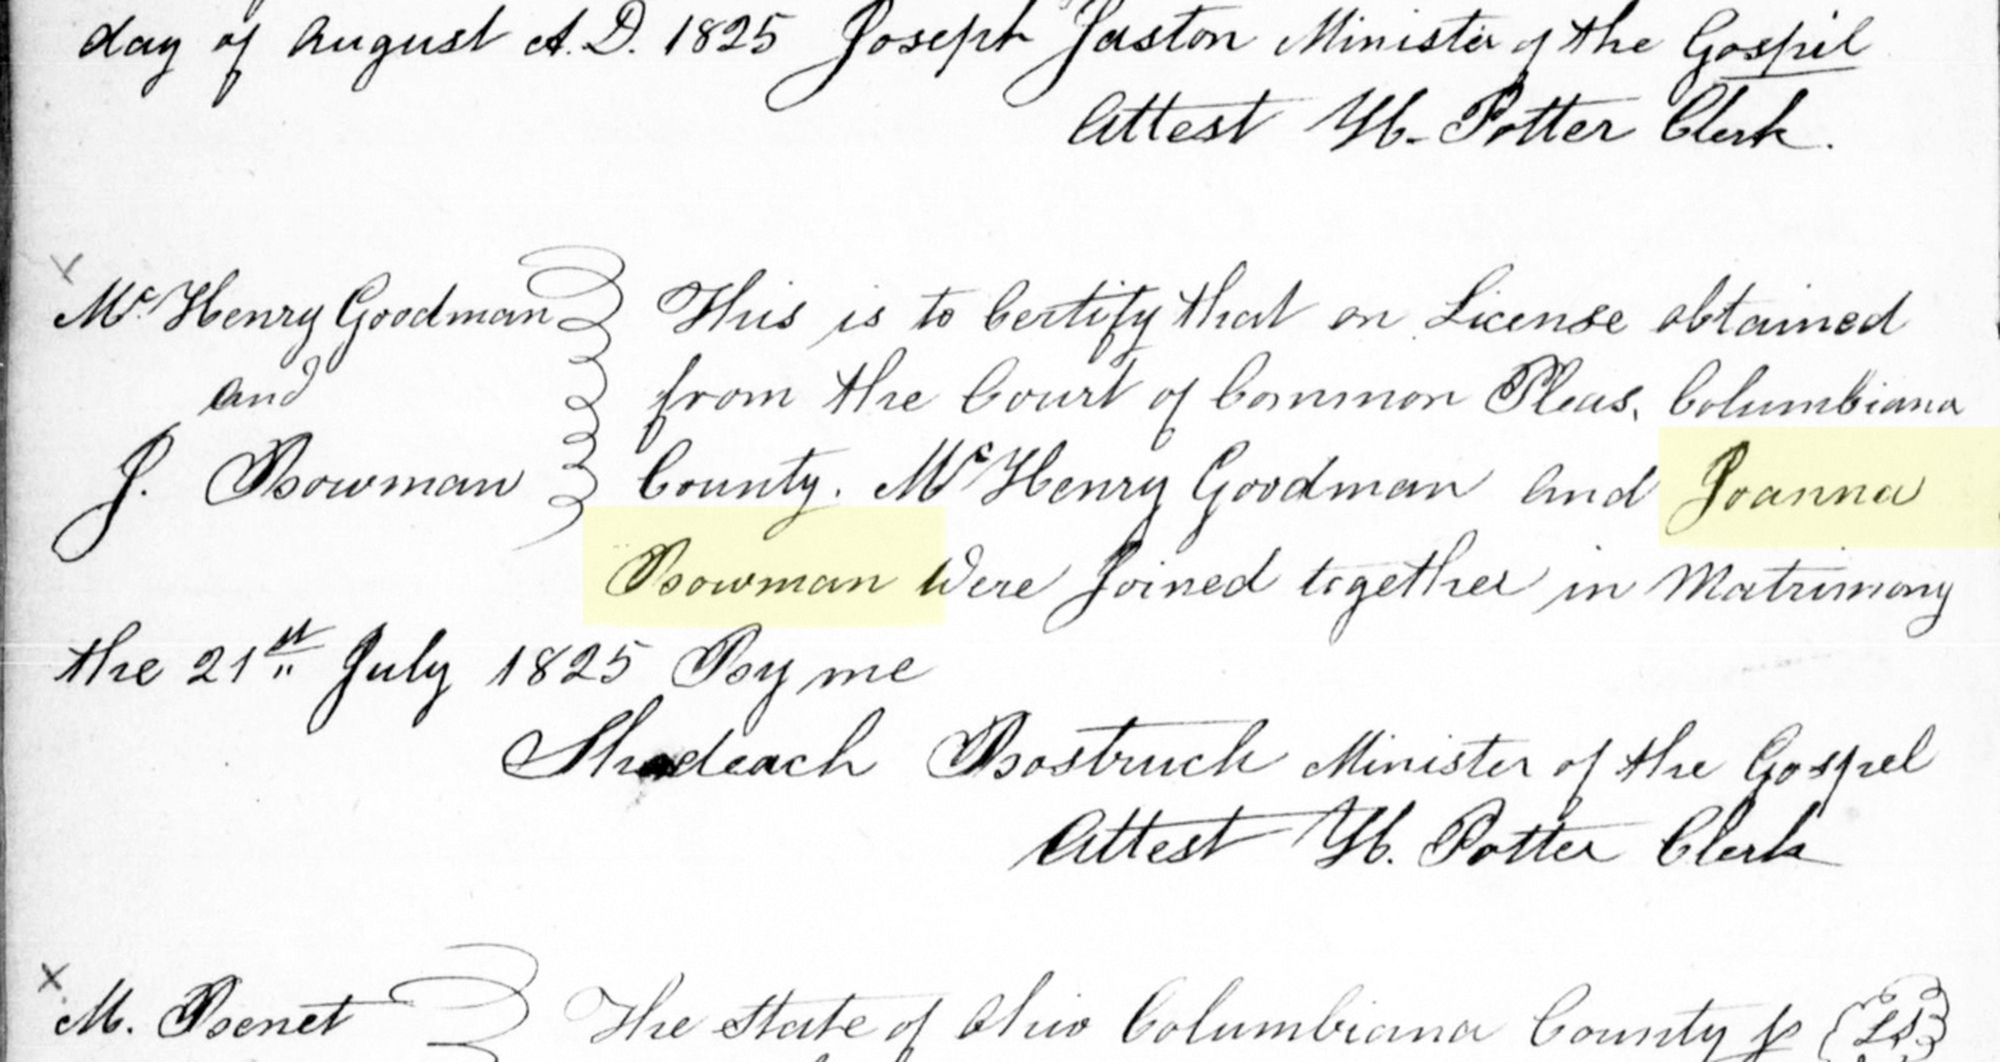 day of August A.D. 1825 Joseph Jaston Minister of the Gospel
Attest H. Potter Clerk.
Mc Henry Goodman
and
J. Bowman
This is to Certify that on License obtained
from the Court of Common Pleas, Columbiana
County. Mc Henry Goodman and Joanna
Bowman Were Joined together in Matrimony
the 21st July 1825 By me
Shadeach Bostruck Minister of the Gospel
Attest H. Potter Clerk
M. Benet
The State of Ohio Columbiana County
LS